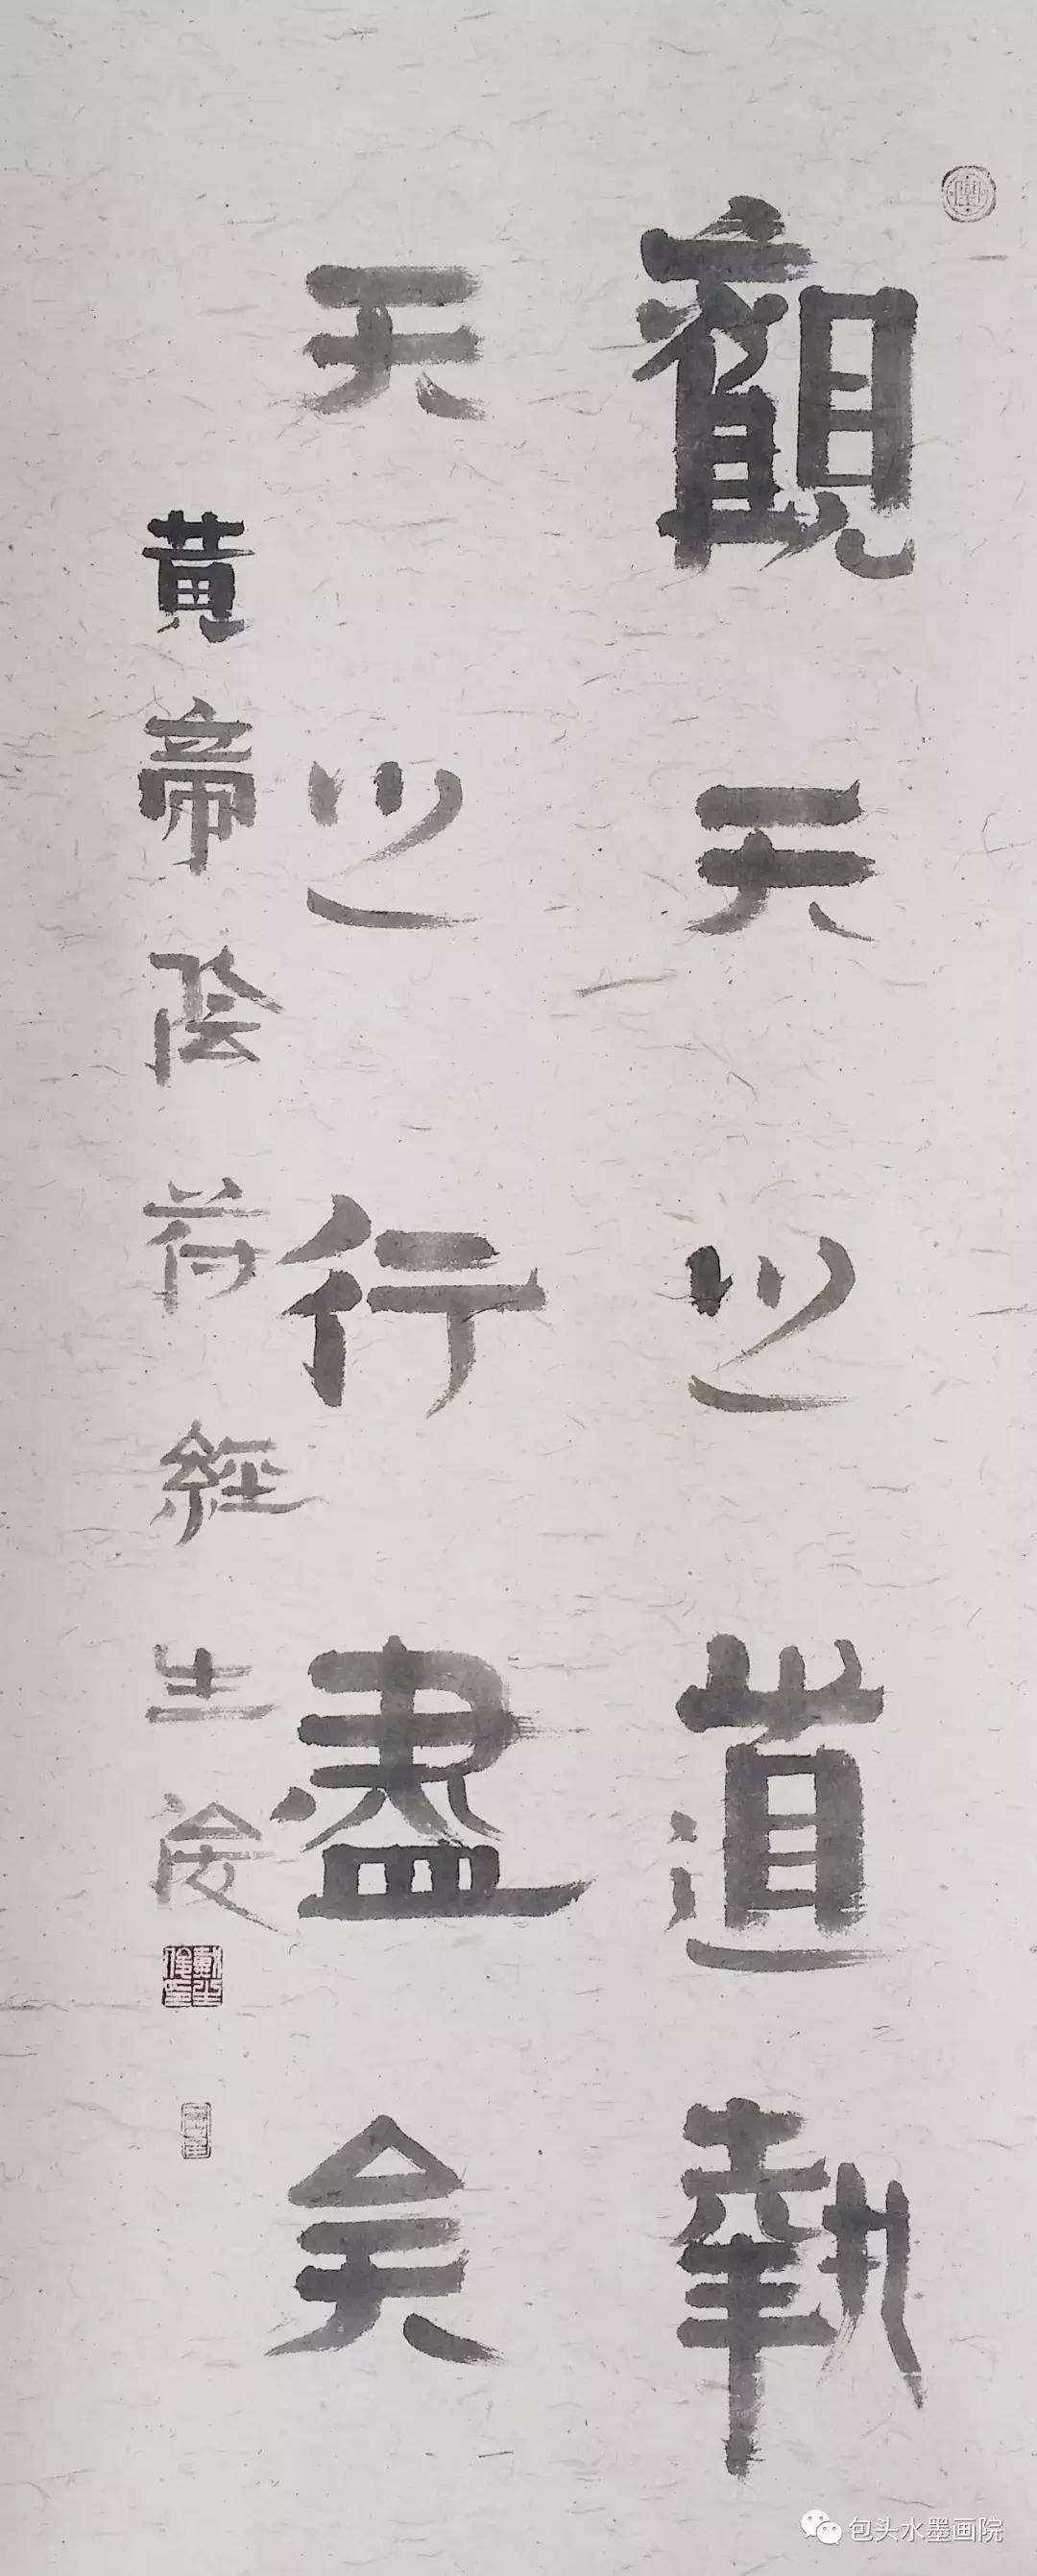 觀天之道執
天之行盡矣
黃帝陰符經 生俊
戴生俊印
包头水墨画院